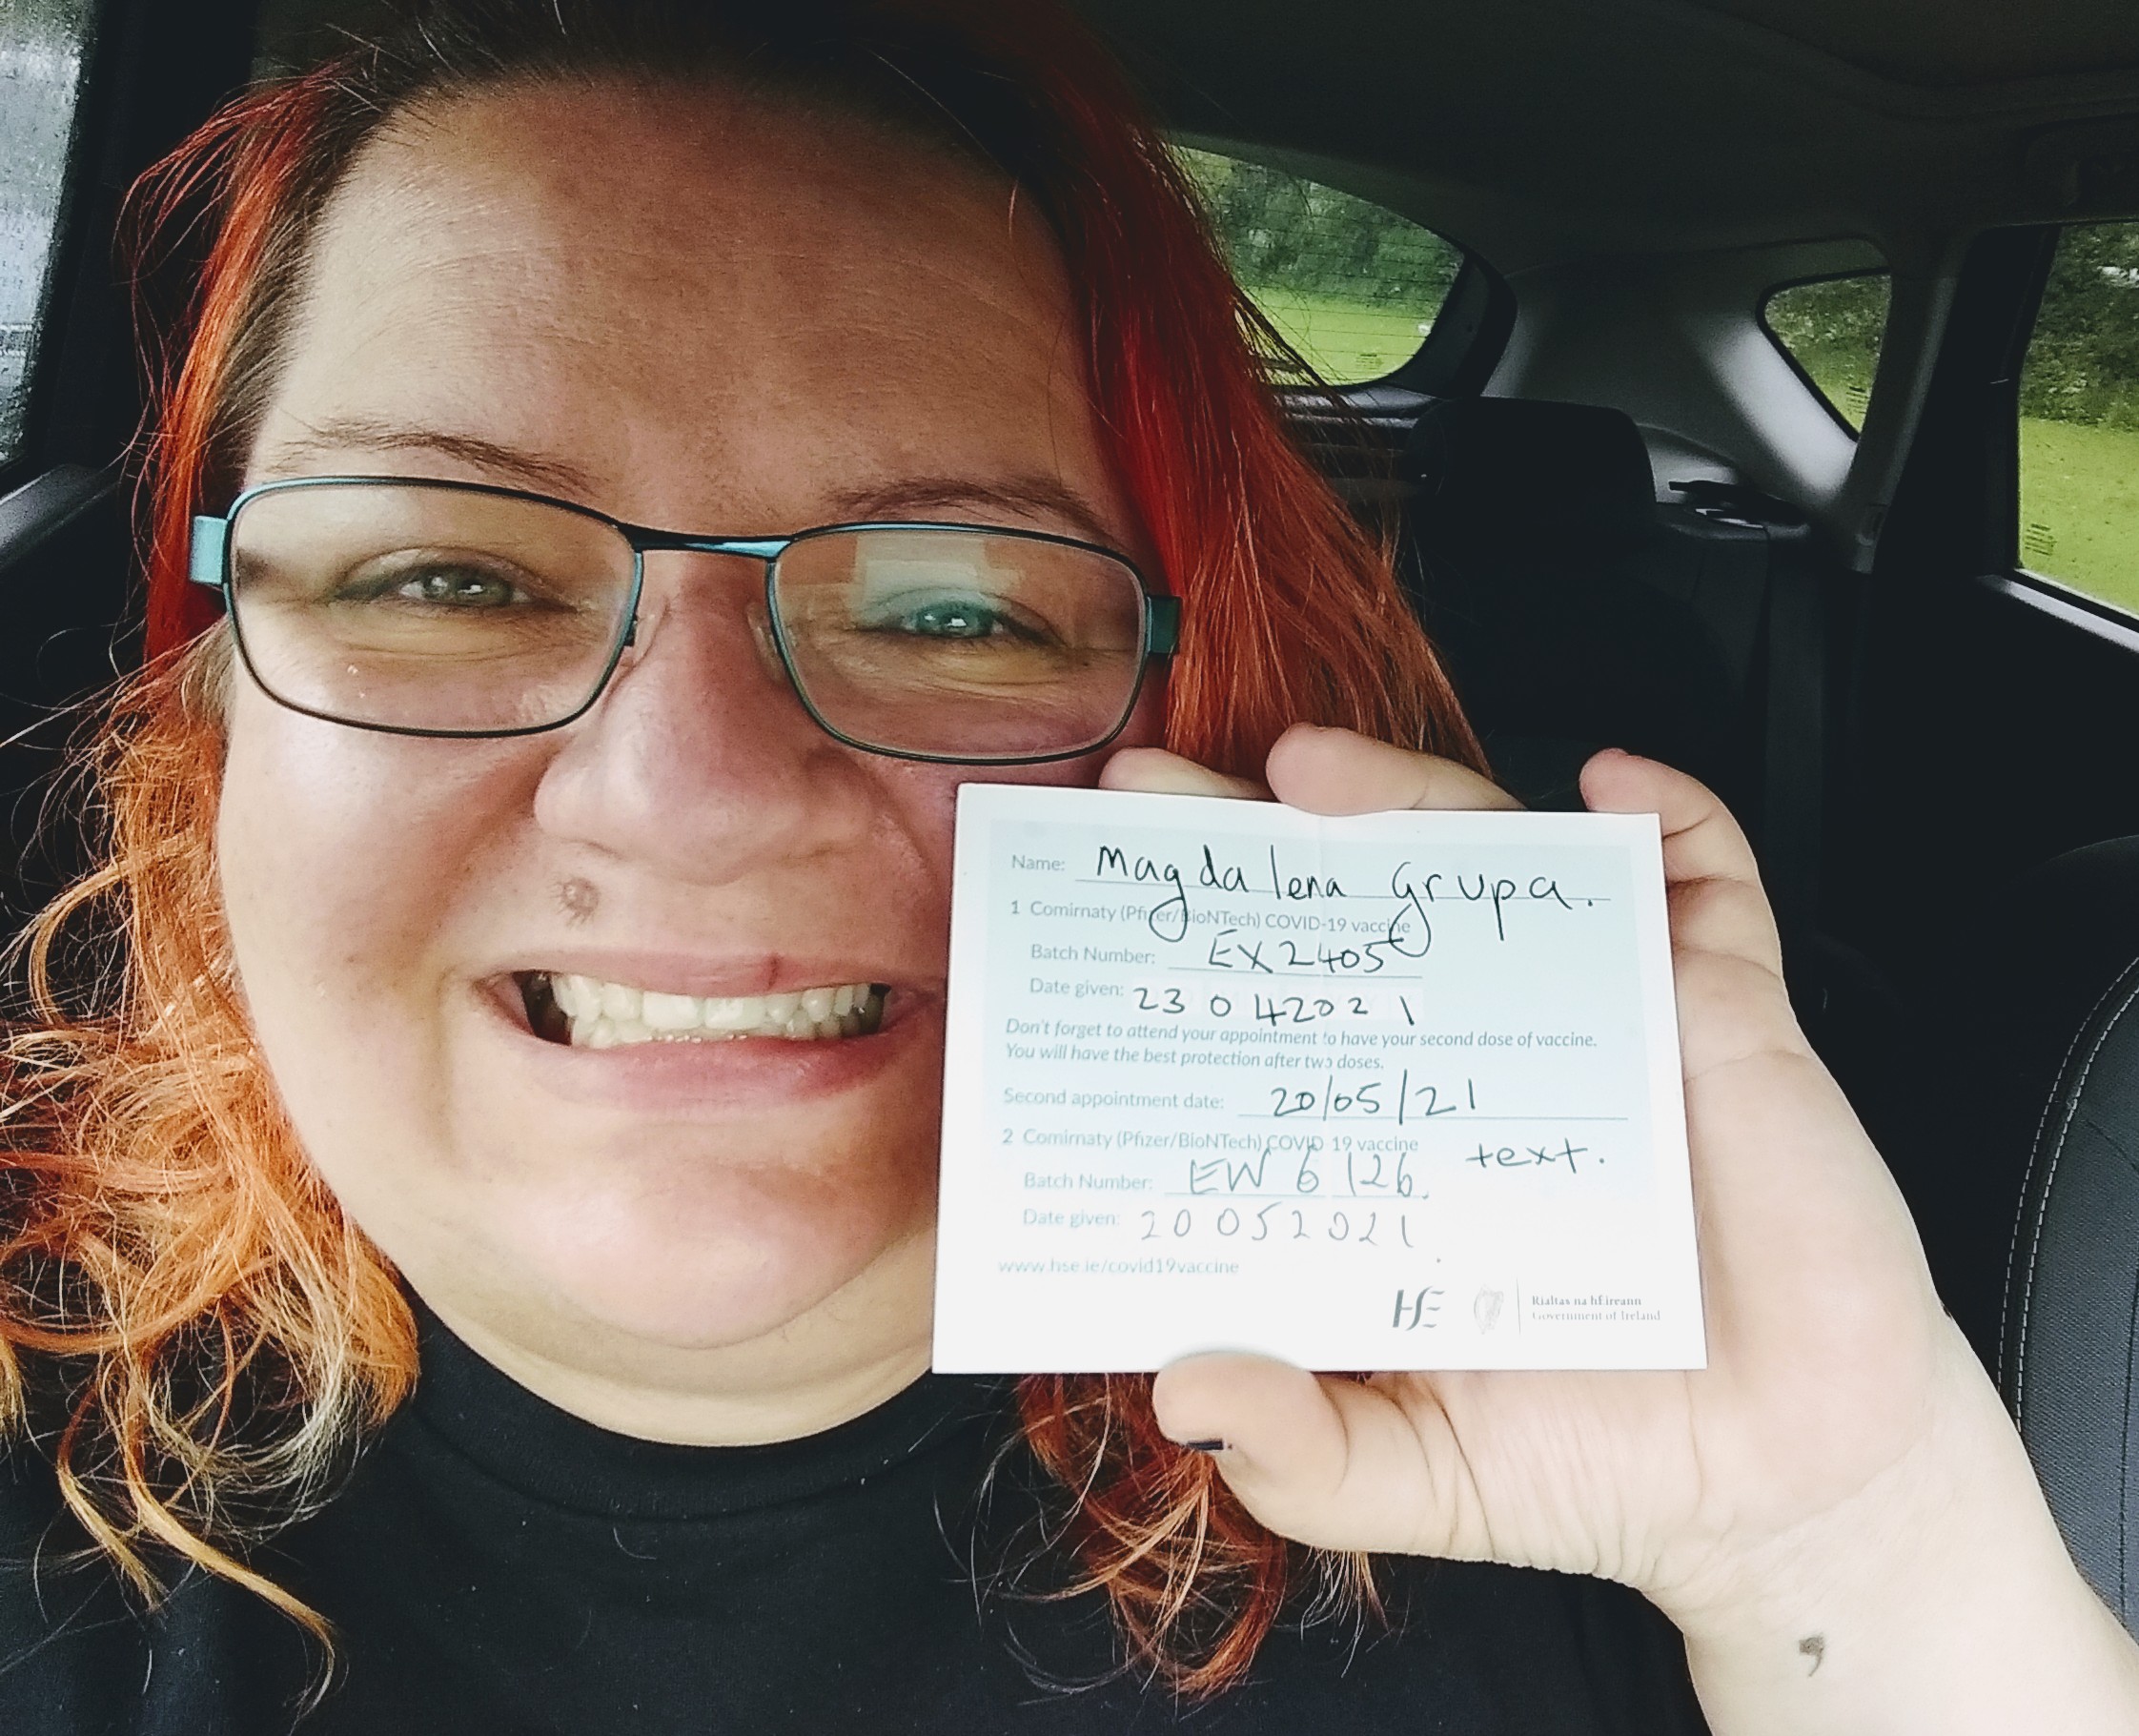 Name: Magdalena Grupa.
1 Comirnaty (Pfizer/BioNTech) COVID-19 vaccine
Batch Number: EX2405
Date given: 23 04 2021
Don't forget to attend your appointment to have your second dose of vaccine.
You will have the best protection after two doses.
Second appointment date: 20/05/21
2 Comirnaty (Pfizer/BioNTech) COVID-19 vaccine text.
Batch Number: EW6126.
Date given: 20 05 2021
www.hse.ie/covid19vaccine
HSE
Rialtas na hÉireann
Government of Ireland